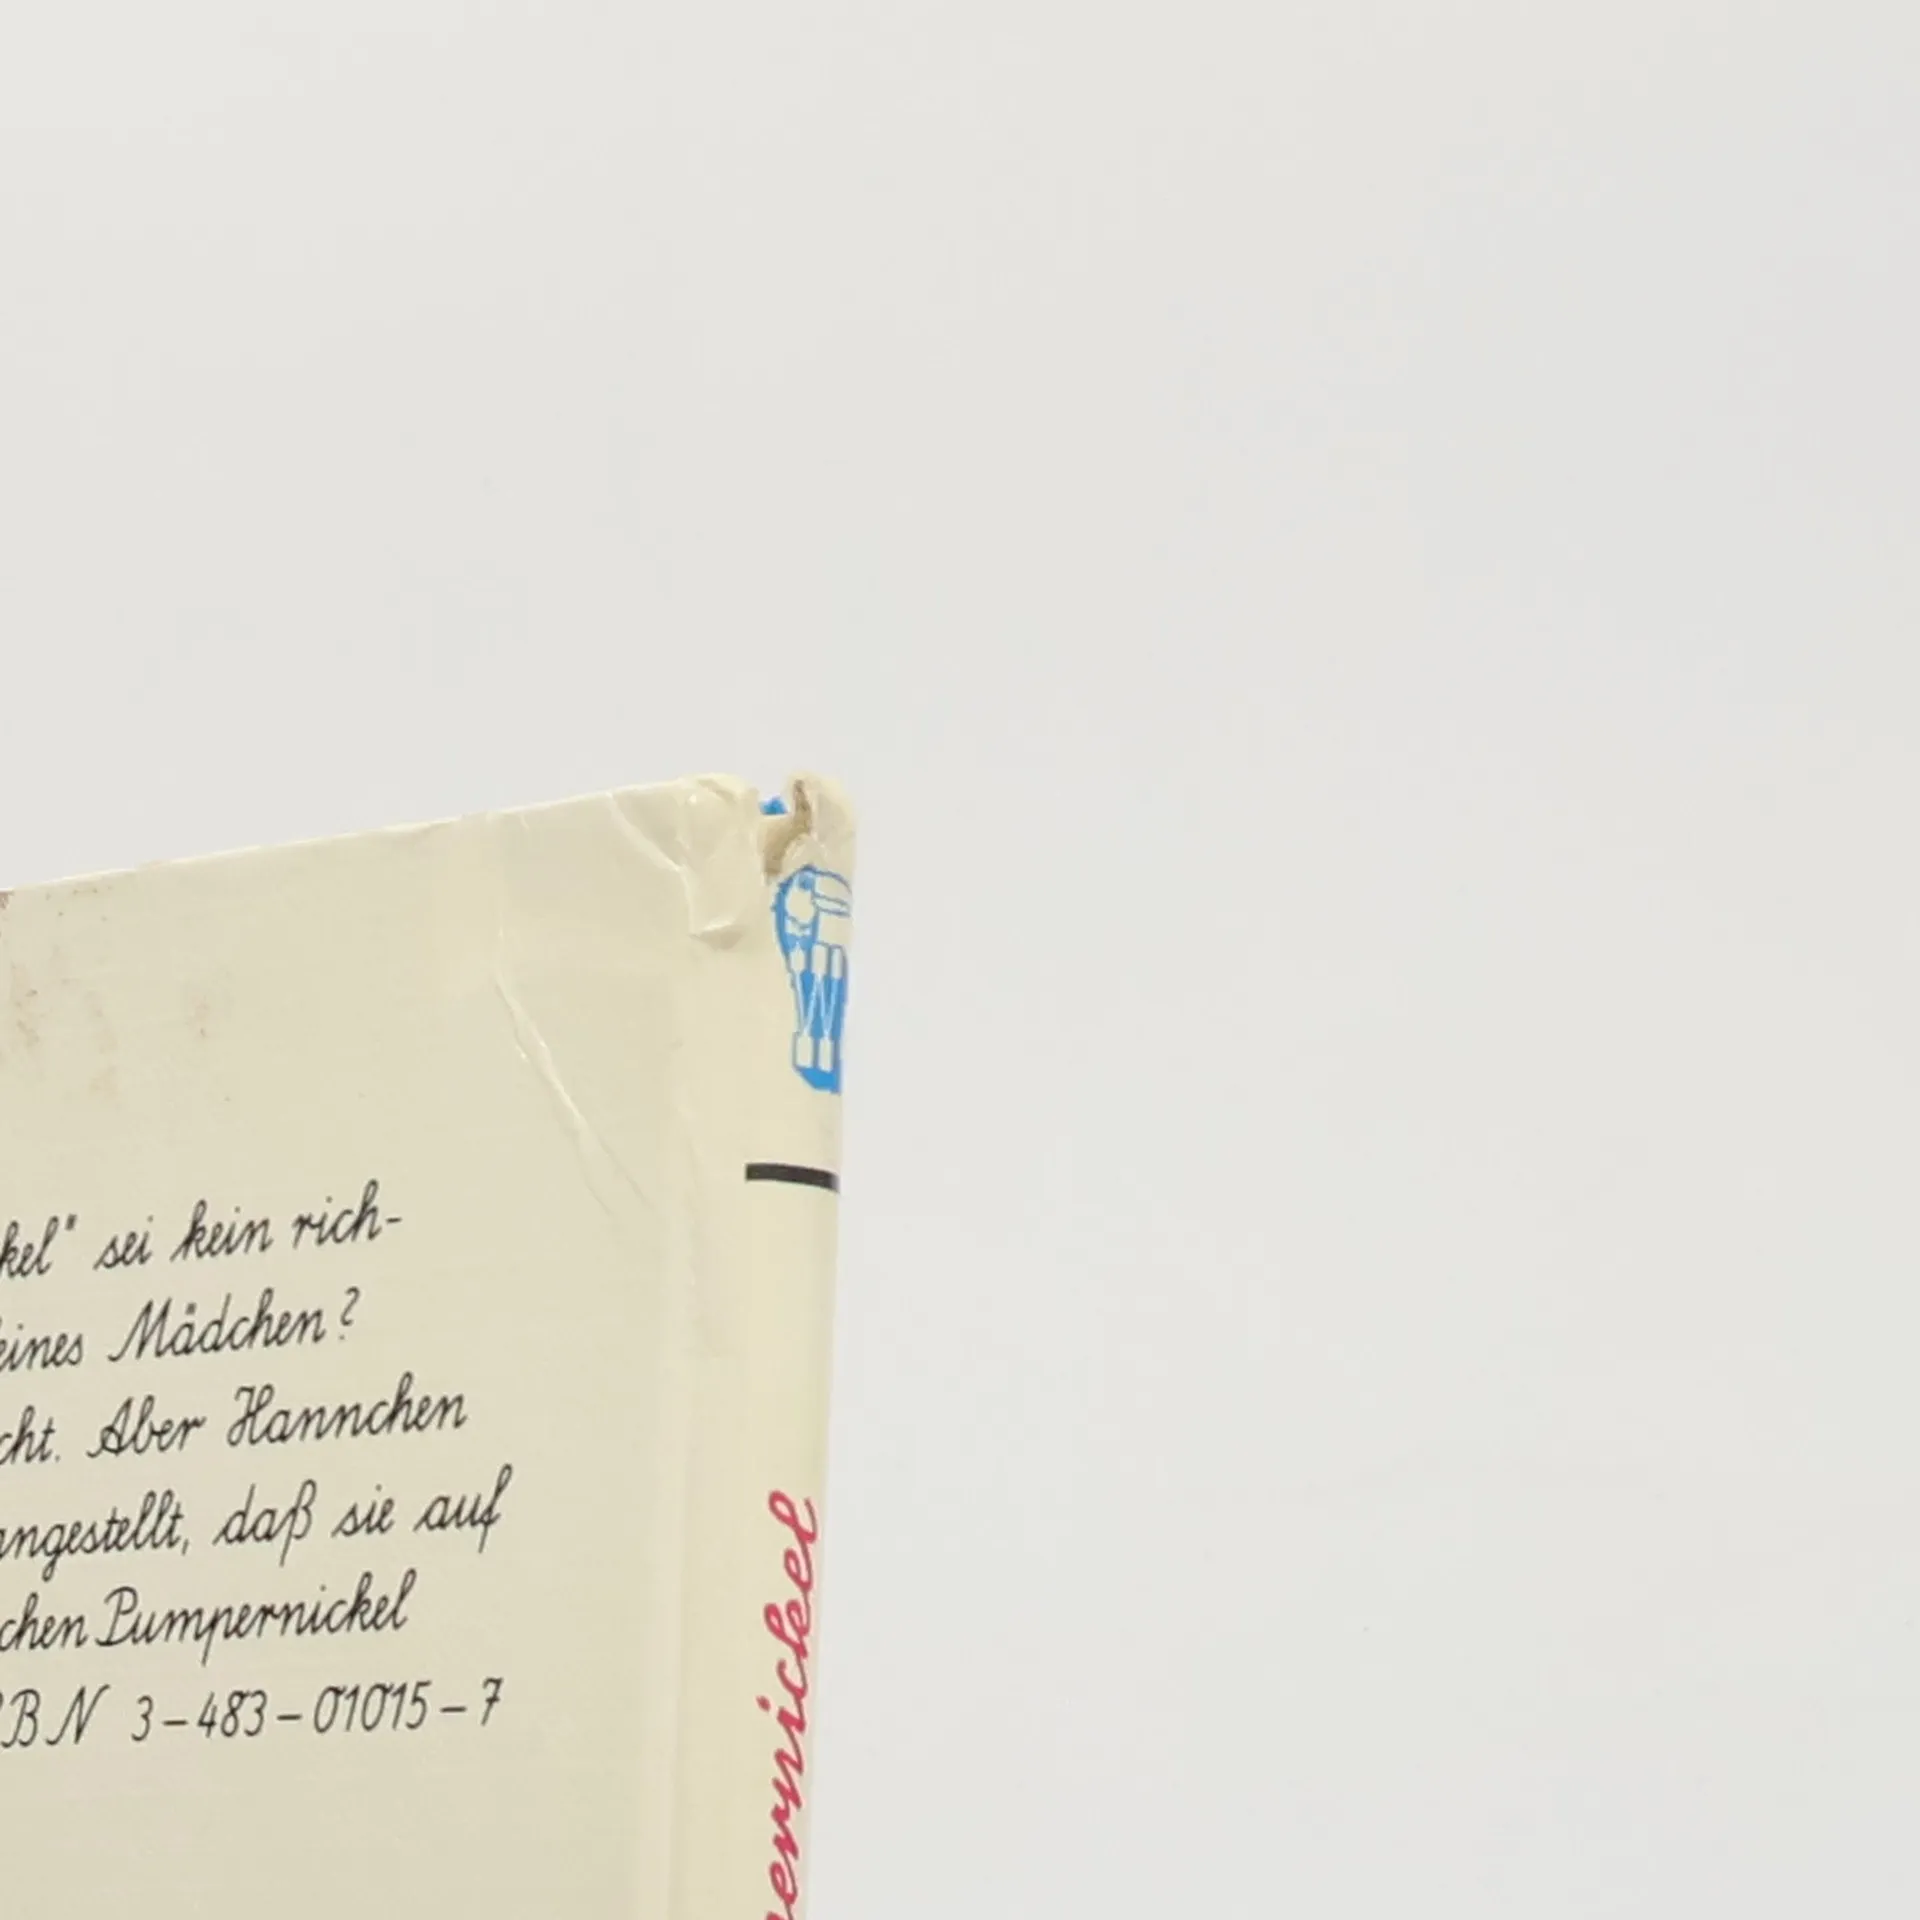 kel" sei kein rich-
eines Mädchen?
cht. Aber Hannchen
angestellt, daß sie auf
chen Pumpernickel
BN 3-483-01015-7
W
ernickel